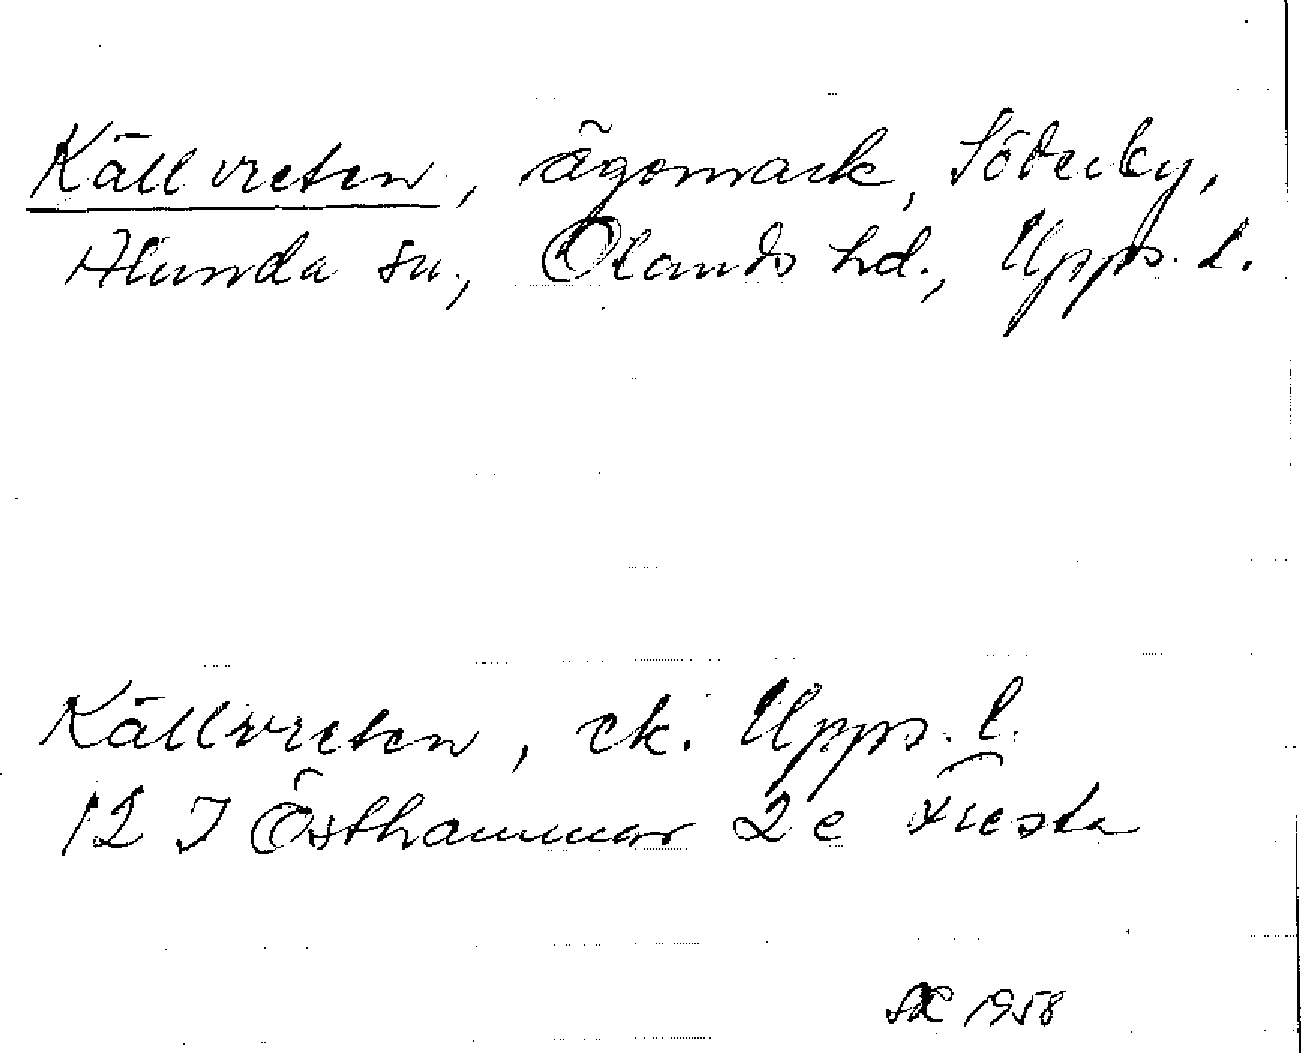 Källvreten, ägomark, Söderby,
Alunda sn., Olands hd., Upps. l.
Källvreten, ek. Upps. l.
12 I Östhammar 2 e Foresta
SK 1958